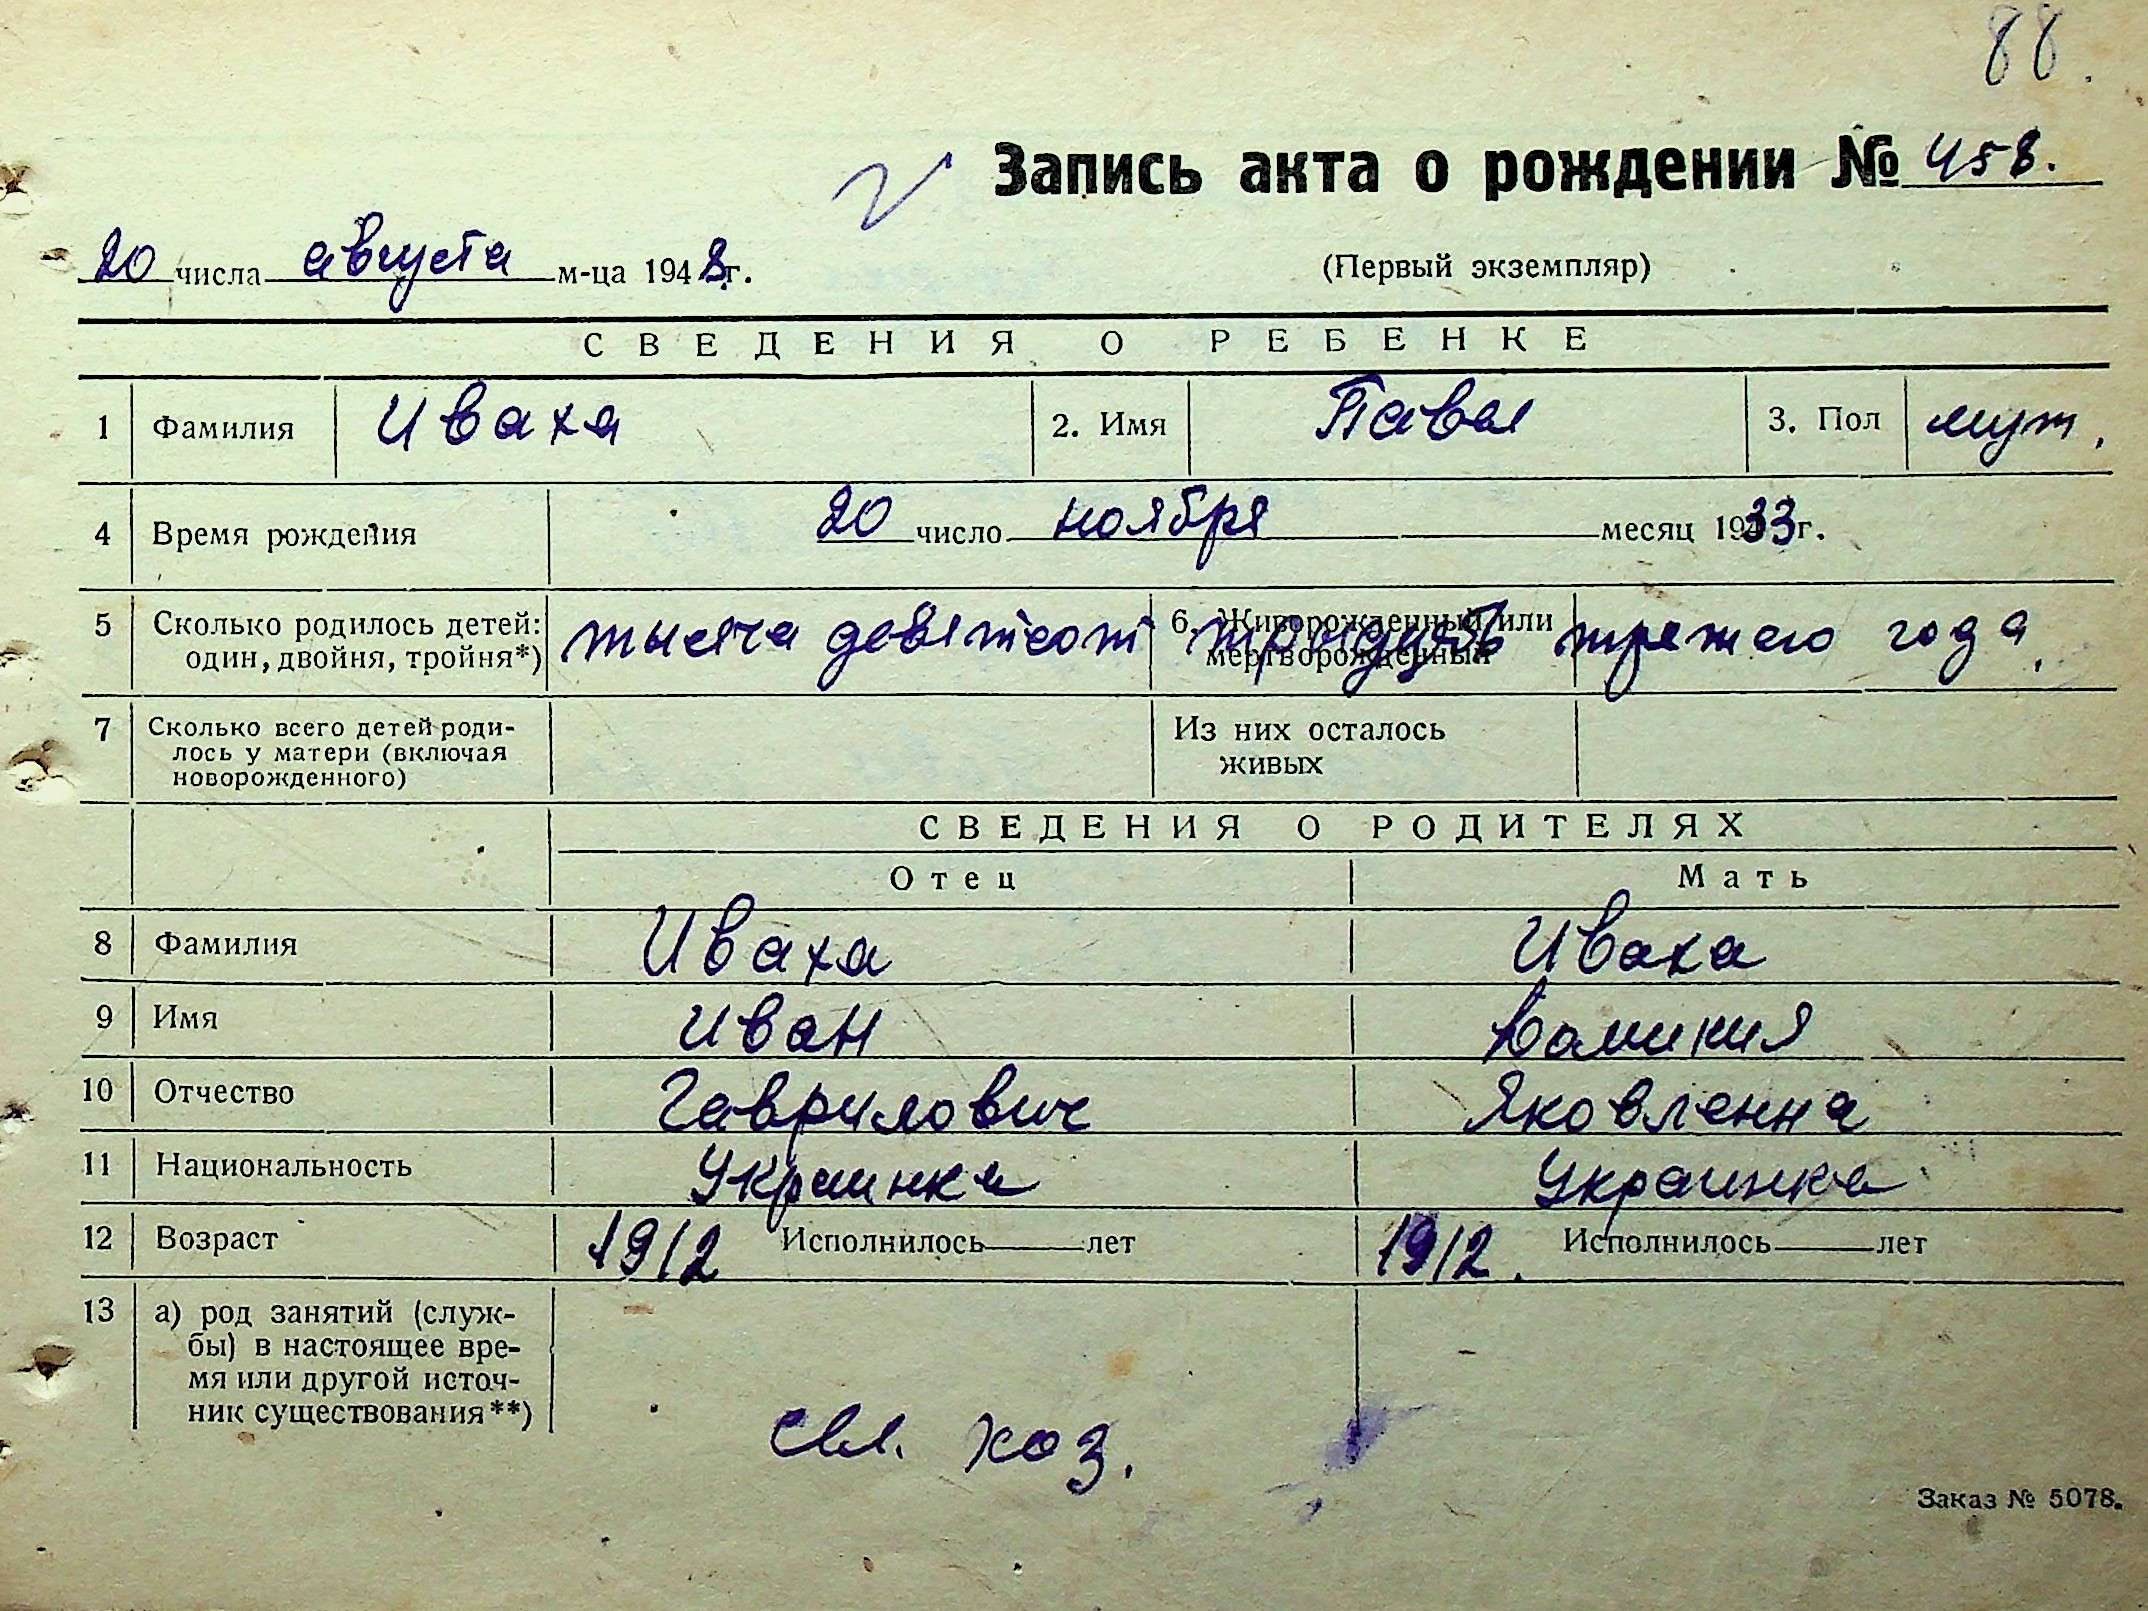 88.
Запись акта о рождении № 458.
20 числа августа м-ца 1948 г.
(Первый экземпляр)
СВЕДЕНИЯ О РЕБЕНКЕ
1 Фамилия Иваха 2. Имя Павел 3. Пол муж.
4 Время рождения 20 число ноября месяц 1933 г.
5 Сколько родилось детей: один, двойня, тройня*) 6. Живорожденный или мертворожденный
тысяча девятсот тридцять третего года.
7 Сколько всего детей родилось у матери (включая новорожденного) Из них осталось живых
СВЕДЕНИЯ О РОДИТЕЛЯХ
Отец Мать
8 Фамилия Иваха Иваха
9 Имя Иван Домикия
10 Отчество Гаврилович Яковленна
11 Национальность Украинка Украинка
12 Возраст 1912 Исполнилось лет 1912. Исполнилось лет
13 а) род занятий (служ-
бы) в настоящее вре-
мя или другой источ-
ник существования**)
сел. хоз.
Заказ № 5078.